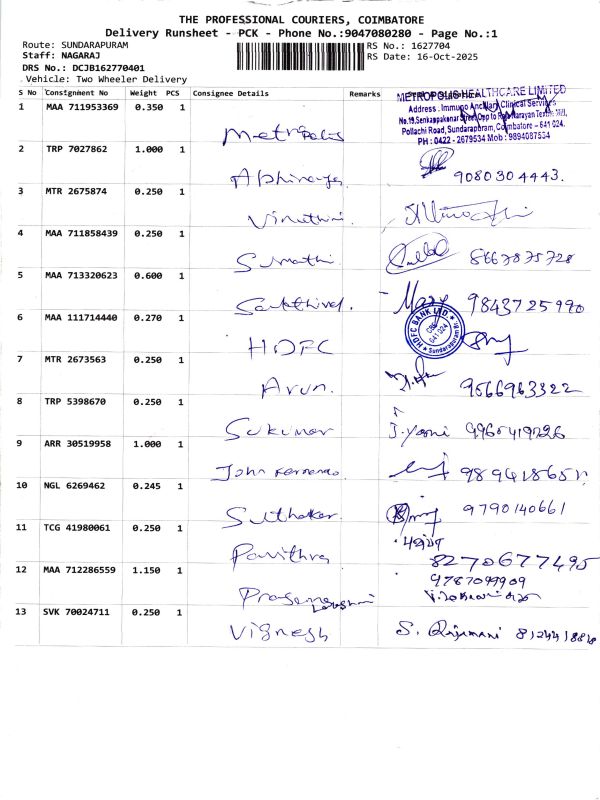 THE PROFESSIONAL COURIERS, COIMBATORE
Delivery Runsheet - PCK - Phone No.:9047080280 - Page No.:1
Route: SUNDARAPURAM
RS No.: 1627704
Staff: NAGARAJ
RS Date: 16-Oct-2025
DRS No.: DCJB162770401
Vehicle: Two Wheeler Delivery
S No Consignment No Weight PCS Consignee Details Remarks
METROPOLIS HEALTHCARE LIMITED
Address: Immuno Ancillary Clinical Services
No.19, Senkappakanar Street, Opp to Ramnarayan Textile Mill,
Pollachi Road, Sundarapuram, Coimbatore - 641 024.
PH : 0422 - 2679534 Mob : 9894087554
1 MAA 711953369 0.350 1
Metropolis
2 TRP 7027862 1.000 1
Abhinaya. 9080304443.
3 MTR 2675874 0.250 1
Vinuthini
4 MAA 711858439 0.250 1
Sumathi. 8667875728
5 MAA 713320623 0.600 1
Sakthivel. 9843725990
6 MAA 111714440 0.270 1
HDFC
HDFC BANK LTD
CBE
641 024
Sundarapuram
7 MTR 2673563 0.250 1
Arun. 9566963322
8 TRP 5398670 0.250 1
Sukumar
9 ARR 30519958 1.000 1
John Fernando.
10 NGL 6269462 0.245 1
Suthakar. 9790140661
11 TCG 41980061 0.250 1
Pavithra 8270677495
12 MAA 712286559 1.150 1
9787099909
Prasanna Lakshmi
13 SVK 70024711 0.250 1
Vignesh S.